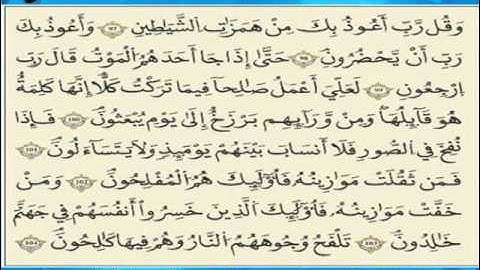 وَقُل رَّبِّ أَعُوذُ بِكَ مِنْ هَمَزَٰتِ اِ۬لشَّيَٰطِينِ 97 وَأَعُوذُ بِكَ
رَبِّ أَنْ يَّحْضُرُونِ 98 حَتَّىٰ إِذَا جَا أَحَدَهُمُ اُ۬لْمَوْتُ قَالَ رَبِّ
اِ۪رْجِعُونِ 99 لَعَلِّيَ أَعْمَلُ صَٰلِحاً فِيمَا تَرَكْتُ كَلَّا إِنَّهَا كَلِمَةٌ
هُوَ قَآئِلُهَا وَمِنْ وَّرَآئِهِم بَرْزَخٌ إِلَىٰ يَوْمِ يُبْعَثُونَ 100 فَإِذَا
نُفِخَ فِي اِ۬لصُّورِ فَلَا أَنسَابَ بَيْنَهُمْ يَوْمَئِذٍ وَلَا يَتَسَآءَلُونَ 101
فَمَن ثَقُلَتْ مَوَٰزِينُهُۥ فَأُوْلَٰٓئِكَ هُمُ اُ۬لْمُفْلِحُونَ 102 وَمَنْ
خَفَّتْ مَوَٰزِينُهُۥ فَأُوْلَٰٓئِكَ اَ۬لَّذِينَ خَسِرُوٓاْ أَنفُسَهُمْ فِي جَهَنَّمَ
خَٰلِدُونَ 103 تَلْفَحُ وُجُوهَهُمُ اُ۬لنَّارُ وَهُمْ فِيهَا كَٰلِحُونَ 104